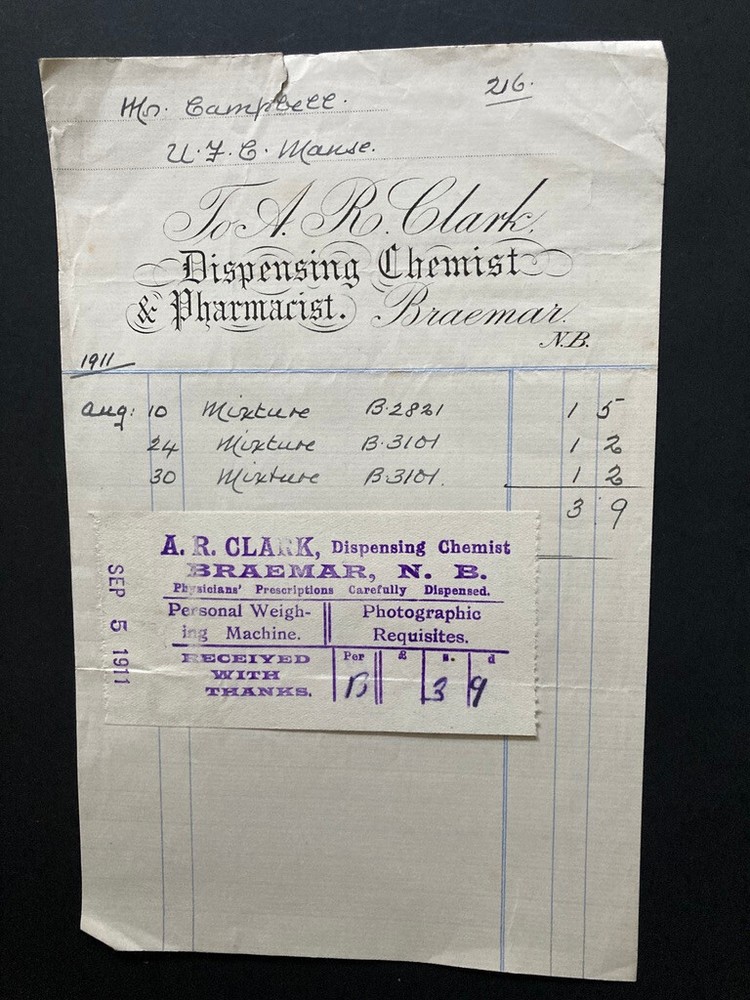 Mr. Campbell. 216.
U.F.C. Manse.
To A. R. Clark,
Dispensing Chemist
& Pharmacist. Braemar.
N.B.
1911
Aug: 10 Mixture B.2821 1 5
24 Mixture B.3101 1 2
30 Mixture B.3101. 1 2
3 9
A. R. CLARK, Dispensing Chemist
BRAEMAR, N. B.
Physicians' Prescriptions Carefully Dispensed.
Personal Weigh-
ing Machine.
Photographic
Requisites.
RECEIVED
WITH
THANKS.
Per £ s. d
B 3 9
SEP 5 1911